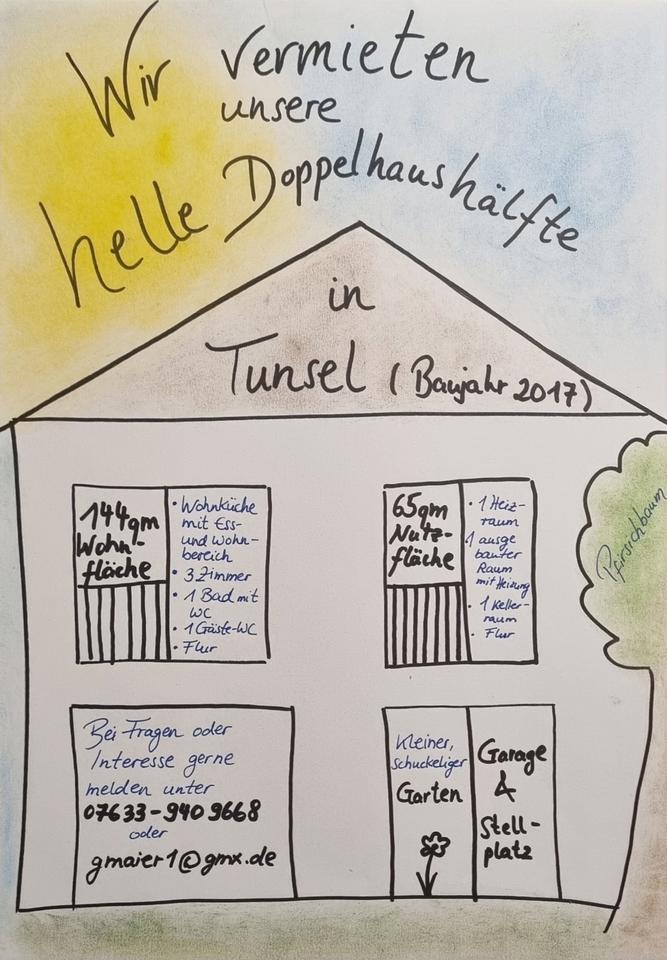 Wir vermieten
unsere
helle Doppelhaushälfte
in
Tunsel (Baujahr 2017)
144qm
Wohn-
fläche
• Wohnküche
mit Ess-
und Wohn-
bereich
• 3 Zimmer
• 1 Bad mit
WC
• 1 Gäste-WC
• Flur
65qm
Nutz-
fläche
• 1 Heiz-
raum
1 ausge
bauter
Raum
mit Heizung
• 1 Keller-
raum
• Flur
Pfirsichbaum
Bei Fragen oder
Interesse gerne
melden unter
07633-940 9668
oder
gmaier1@gmx.de
Kleiner,
schuckeliger
Garten
Garage
&
Stell-
platz